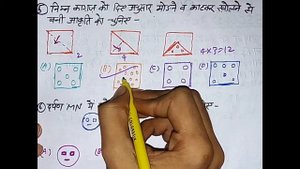 5. निम्न कागज को दिए अनुसार मोडने व काटकर खोलने से
बनी आकृति को चुनिए -
2 4 4×3=12
(A) (B) (C) (D)
6. दर्पण MN में
(A)